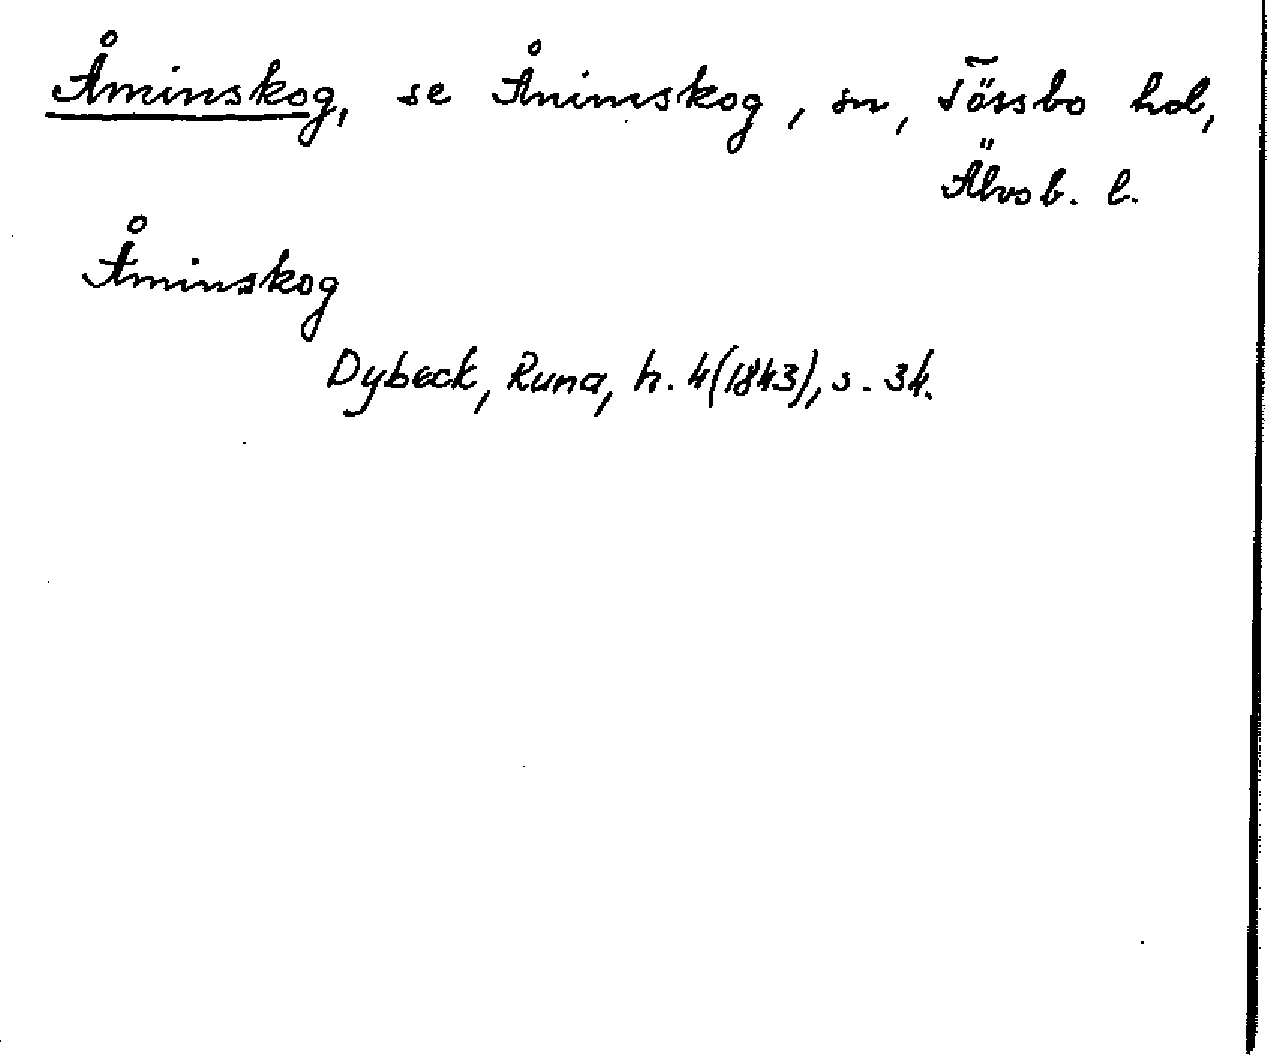 Åminskog, se Ånimskog, sn, Tössbo hd,
Älvsb. l.
Åminskog
Dybeck, Runa, h. 4(1843), s. 34.